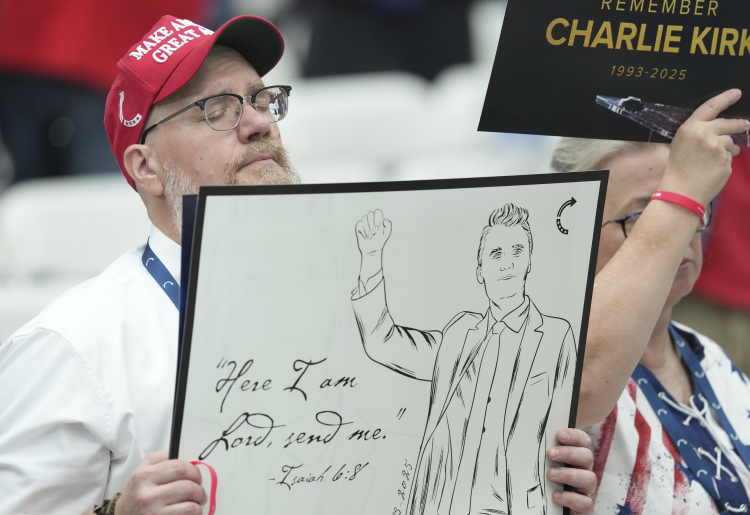 MAKE
GREAT
REMEMBER
CHARLIE KIRK
1993-2025
"Here I am
Lord, send me."
-Isaiah 6:8
2025